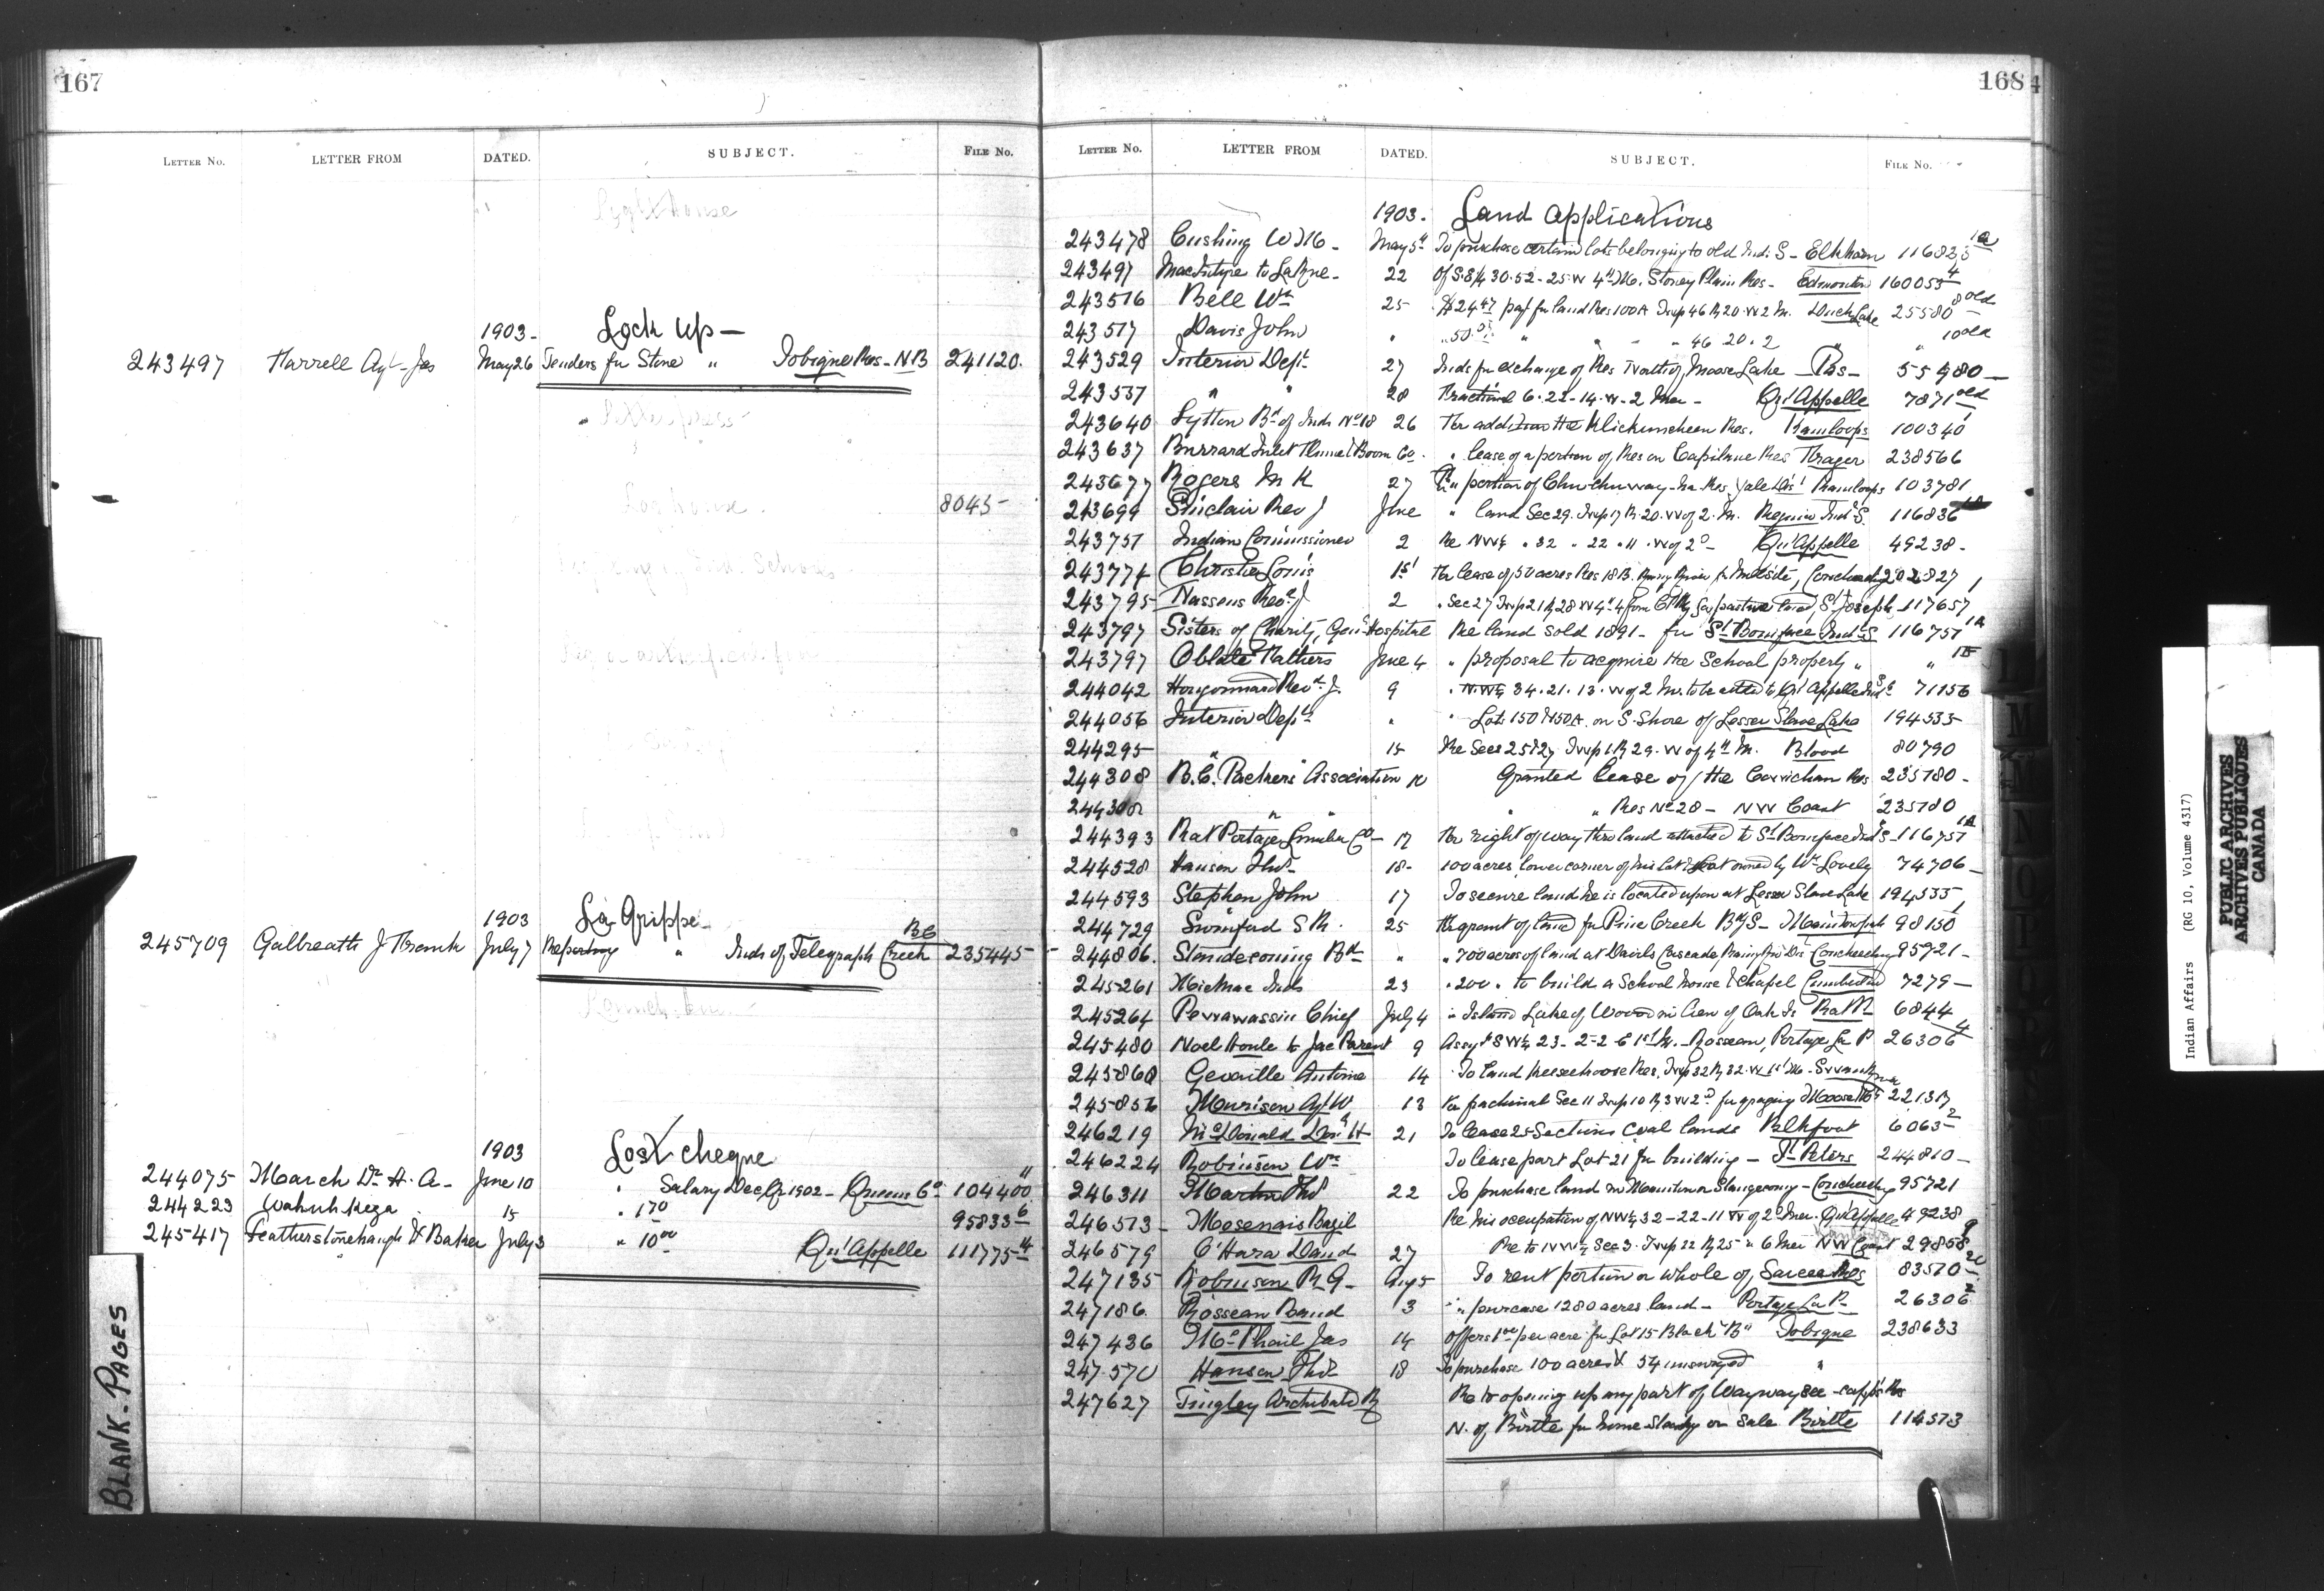 167
LETTER No. LETTER FROM DATED. SUBJECT. FILE No.
Lighthouse
1903- Lock up-
243497 Farrell Agt- Jas May 26 Tenders for Stone " Tobique Res- NB 241120.
Letterpress
Log house. 8045-
1903 La Grippe
BC
245709 Galbreath J Frank July 7 Reporting " Inds of Telegraph Creek 235445-
1903 Lost cheque
244075 March Dr H. A- June 10 " Salary Dec Qr 1902- Queens Co 104400 11
244223 Wahuhkeza 15 " 170 95833 6
245417 Featherstonehaugh W Baker July 3 " 10 00 Qu'Appelle 111775-4
BLANK-PAGES
168
4
LETTER No. LETTER FROM DATED. SUBJECT. FILE No.
1903. Land applications
243478 Cushing W M- May 5" To purchase certain lots belonging to old Ind. S- Elkhorn 116823 1a
243497 MacIntyre to LaRue- 22 Of S.E/4 30-52-25-W 4" M. Stoney Plain Res- Edmonton 160053 4
243516 Bell Wm 25 $24.47 payt for land Res 100A Twp 46 R 20-W 2 M. Duck Lake 25580 8 old
243517 Davis John " " 50. " " " 46 20. 2 " " 10 old
243529 Interior Dept. 27 Inds for exchange of Res North of Moose Lake- Pas- 55980-
243537 " " 28 Fractional 6-22-14-W-2 Mer- Qu'Appelle 7871 old
243640 Lytton Bd of Inds No 18 26 For addition the Klickumcheen Res. Kamloops 100340
243637 Burrard Inlet Flume & Boom Co. " lease of a portion of Res on Capilano Res Frazer 238566
243677 Rogers M K 27 For " portion of Chuchuway-ha Res Yale Dist Kamloops 103781
243699 Sinclair Rev J June " land Sec 29. Twp 17 R. 20. W of 2. M. Regina Ind S. 116836
243751 Indian Commissioner 2 Re NW4 . 32 . 22 . 11 . W of 2d- Qu'Appelle 49238-
243774 Christie Louis 1st For lease of 50 acres Res 18B. Rainy River for Millsite, Coucheeching 202827
243795 Nassens Revd J 2 " Sec 27 Twp 21 R 28 W 4" from CP Ry for pasture land, St Joseph 117657
243797 Sisters of Charity, Genl Hospital Re land sold 1891- for St Boniface Ind S 116751 1A
243797 Oblate Fathers June 4 " proposal to acquire the School property " " 1B
244042 Hougonnard Revd J. 9 " N.W4 34. 21. 13. W of 2 M. to be added to Qu'Appelle Ind S 71156
244056 Interior Dept. " " Lot 150 & 150A. on S. Shore of Lesser Slave Lake 194535
244295 " 15 Re Secs 25 & 27 Twp 1 R 29. W of 4th M. Blood 80790
244308 B.C. Packers' Association 10 Granted lease of the Cowichan Res 235180-
244308 " " " " Res No 28- NW Coast 235180
244393 Rat Portage Lumber Co- 17 For right of way thro land attached to St Boniface Ind S- 116751 1A
244528 Hansen Thos- 18- 100 acres lower corner of his lot & lot owned by Wm Lovely 74706-
244593 Stephen John 17 To secure land he is located upon at Lesser Slave Lake 194535
244729 Swinford S R. 25 For grant of land for Pine Creek Bdg S- Manitowpah 98150
244806. Slandecoming Bd " " 700 acres of land at Davids Cascade, Rainy River Dis Coucheeching 95721-
245261 Micmac Inds 23 " 200 " to build a School house & Chapel Cumberland 7279-
245264 Pewawassin Chief July 4 " Island Lake of Woods in lieu of Oak Is Rat P. 6844
245480 Noel Houle to Jac Parent 9 Assgt SW4 23-2-2 E 1st M.- Rosseau, Portage La P 26306 4
245860 Genaille Antoine 14 To land Keeseekoose Res. Twp 32 R 32-W 1st M- Swan R
245856 Murison Agt W 13 Re fractional Sec 11 Twp 10 R 3 W 2d for grazing Moose Mt 221317
246219 McDonald Don H 21 To lease 25 Sections coal lands Blkfoot 6063 2
246224 Robinson Wm To lease part Lot 21 for building- St Peters 244810-
246311 Martin Thos 22 To purchase land in Manitou or Slangecoming- Coucheeching 95721
246513- Mosenais Bazil Re his occupation of NW4 32-22-11 W of 2d Mer. Qu'Appelle 49238
246579 O'Hara David 27 Re to NW4 Sec 3. Twp 22 R 25 W 6 Mer NW Coast 29858 9
247135 Robinson R G- Aug 5 To rent portion or whole of Sarcee Res 83510
247186. Rosseau Band 3 " " purcase 1280 acres land- Portage La P- 26306 2
247436 McPhail Jas 14 Offers 1.00 per acre for Lot 15 Block "B" Tobique 238633
247570 Hansen Thos 18 To purchase 100 acres & 54 unsurveyed "
247627 Tingley Archibald R Re to opening up any part of Waywaysee-cappo's Res
N. of Birtle for homesteads or Sale Birtle 114573
L
M
N
O
P
Indian Affairs (RG 10, Volume 4317)
PUBLIC ARCHIVES
ARCHIVES PUBLIQUES
CANADA